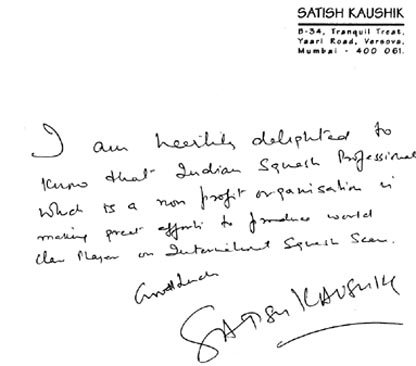 SATISH KAUSHIK
B-34, Tranquil Treat,
Yaari Road, Versova,
Mumbai - 400 061.
I am heartily delighted to
know that Indian Squash Professional
which is a non profit organisation is
making great efforts to produce world
class player on International Squash Scene.
Good Luck
SATISH KAUSHIK